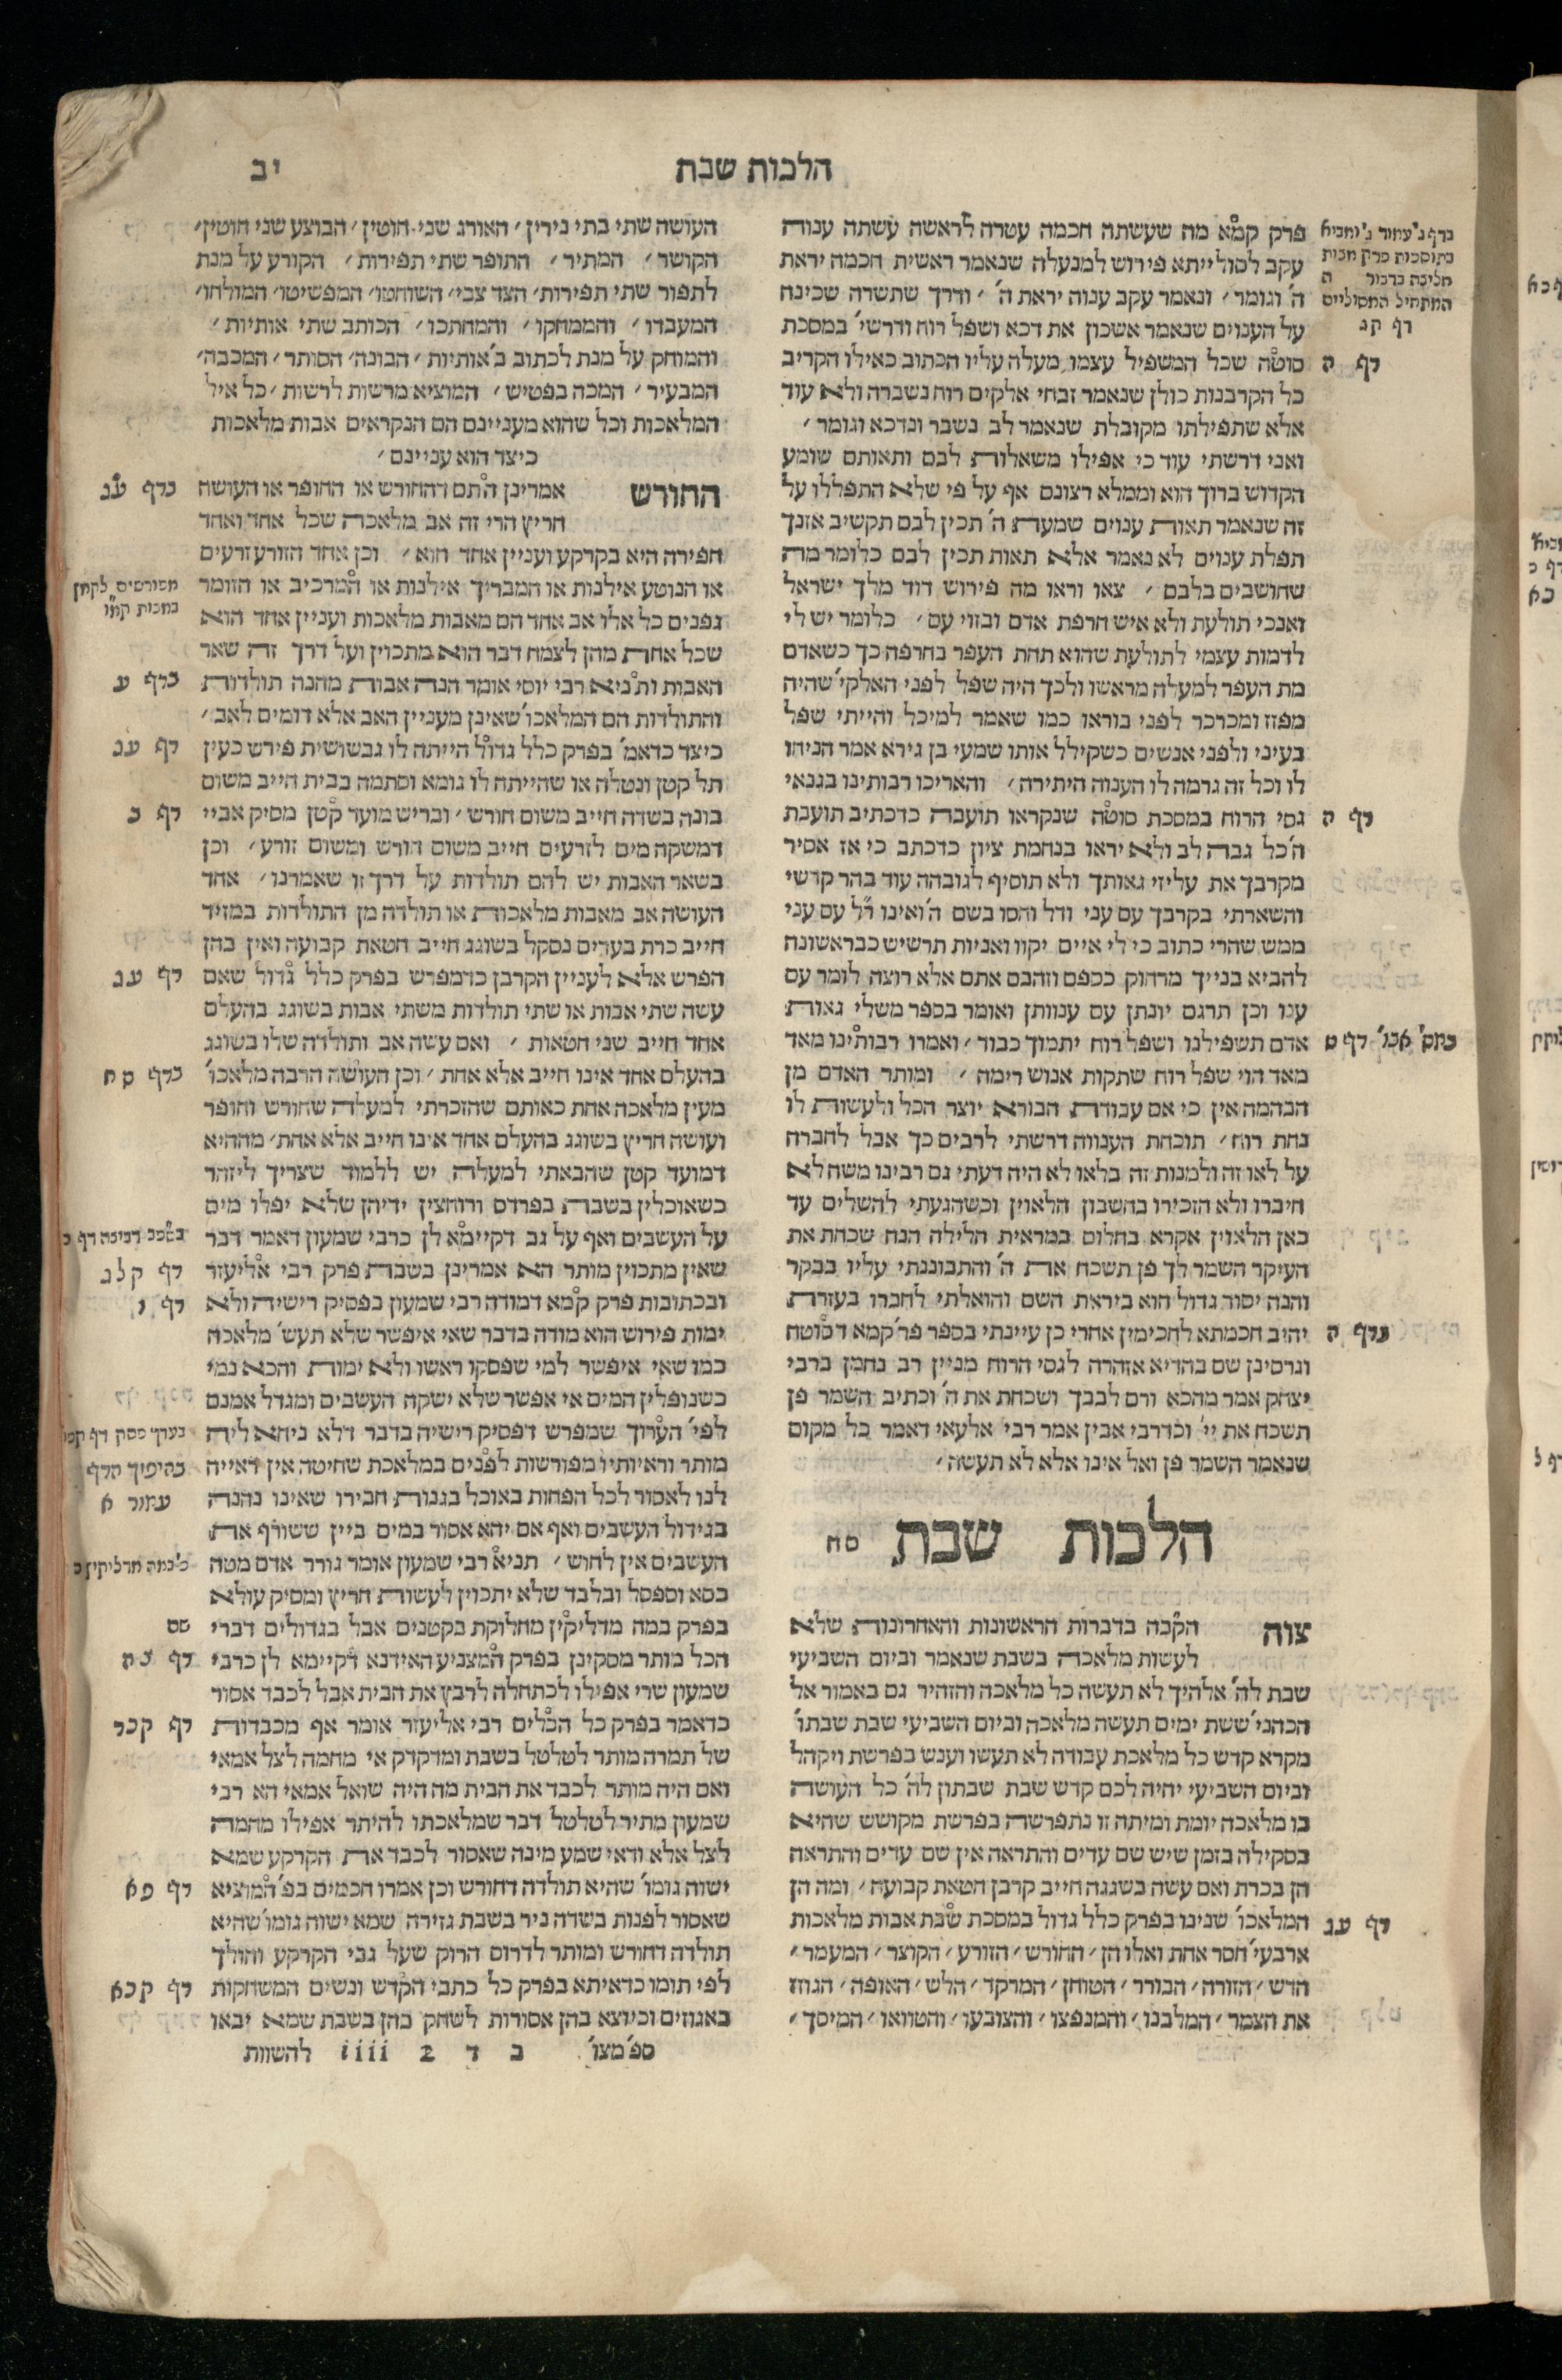 הלכות שבת
יב
פרק קמא מה שעשתה חכמה עטרה לראשה עשתה ענוה
עקב לסולייתא פירוש למנעלה שנאמר ראשית חכמה יראת
ה' וגומר׳ ונאמר עקב ענוה יראת ה'׳ ודרך שתשרה שכינה
על הענוים שנאמר אשכון את דכא ושפל רוח ודרשי' במסכת
סוטה שכל המשפיל עצמו מעלה עליו הכתוב כאילו הקריב
כל הקרבנות כולן שנאמר זבחי אלקים רוח נשברה ולא עוד
אלא שתפילתו מקובלת שנאמר לב נשבר ונדכא וגומר׳
ואני דרשתי עוד כי אפילו משאלות לבם ותאותם שומע
הקדוש ברוך הוא וממלא רצונם אף על פי שלא התפללו על
זה שנאמר תאות ענוים שמעת ה' תכין לבם תקשיב אזנך
תפלת ענוים לא נאמר אלא תאות תכין לבם כלומר מה
שחושבים בלבם׳ צאו וראו מה פירוש דוד מלך ישראל
ואנכי תולעת ולא איש חרפת אדם ובזוי עם׳ כלומר יש לי
לדמות עצמי לתולעת שהוא תחת העפר בחרפה כך כשאדם
מת העפר למעלה מראשו ולכך היה שפל לפני האלקי' שהיה
מפזז ומכרכר לפני בוראו כמו שאמר למיכל והייתי שפל
בעיני ולפני אנשים כשקילל אותו שמעי בן גירא אמר הניחו
לו וכל זה גרמה לו הענוה היתירה׳ והאריכו רבותינו בגנאי
גסי הרוח במסכת סוטה שנקראו תועבה כדכתיב תועבת
ה' כל גבה לב ולא יראו בנחמת ציון כדכתב כי אז אסיר
מקרבך את עליזי גאותך ולא תוסיף לגובהה עוד בהר קדשי
והשארתי בקרבך עם עני ודל וחסו בשם ה' ואינו ר"ל עם עני
ממש שהרי כתוב כי לי איים יקוו ואניות תרשיש כבראשונה
להביא בנייך מרחוק כספם וזהבם אתם אלא רוצה לומר עם
ענו וכן תרגם יונתן עם ענוותן ואומר בספר משלי גאות
אדם תשפילנו ושפל רוח יתמוך כבוד׳ ואמרו רבותינו מאד
מאד הוי שפל רוח שתקות אנוש רימה׳ ומותר האדם מן
הבהמה אין כי אם עבודת הבורא יוצר הכל ולעשות לו
נחת רוח׳ תוכחת הענווה דרשתי לרבים כך אבל לחברה
על לאו זה ולמנות זה בלאו לא היה דעתי גם רבינו משה לא
חיברו ולא הזכירו בחשבון הלאוין וכשהגעתי להשלים עד
כאן הלאוין אקרא בחלום במראית הלילה הנה שכחת את
העיקר השמר לך פן תשכח את ה' והתבוננתי עליו בבקר
והנה יסוד גדול הוא ביראת השם והואלתי לחברו בעזרת
יהיב חכמתא לחכימין אחרי כן עיינתי בספר פר' קמא דסוטה
וגרסינן שם בהדיא אזהרה לגסי הרוח מניין רב נחמן ברבי
יצחק אמר מהכא ורם לבבך ושכחת את ה' וכתיב השמר פן
תשכח את יי' וכדרבי אבין אמר רבי אלעאי דאמר כל מקום
שנאמר השמר פן ואל אינו אלא לא תעשה׳
הלכות שבת סה
צוה הקבה בדברות הראשונות והאחרונות שלא
לעשות מלאכה בשבת שנאמר וביום השביעי
שבת לה' אלהיך לא תעשה כל מלאכה והזהיר גם באמור אל
הכהני' ששת ימים תעשה מלאכה וביום השביעי שבת שבתו'
מקרא קדש כל מלאכת עבודה לא תעשו וענש בפרשת ויקהל
וביום השביעי יהיה לכם קדש שבת שבתון לה' כל העושה
בו מלאכה יומת ומיתה זו נתפרשה בפרשת מקושש שהיא
בסקילה בזמן שיש שם עדים והתראה אין שם עדים והתראה
הן בכרת ואם עשה בשגגה חייב קרבן חטאת קבועה׳ ומה הן
המלאכו' שנינו בפרק כלל גדול במסכת שבת אבות מלאכות
ארבעי' חסר אחת ואלו הן׳ החורש׳ הזורע׳ הקוצר׳ המעמר׳
הדש׳ הזורה׳ הבורר׳ הטוחן׳ המרקד׳ הלש׳ האופה׳ הגוזז
את הצמר׳ המלבנו׳ והמנפצו׳ והצובעו׳ והטוואו׳ המיסך׳
דף ה
דף ה
דף ה
דף עג
העושה שתי בתי נירין׳ האורג שני חוטין׳ הבוצע שני חוטין׳
הקושר׳ המתיר׳ התופר שתי תפירות׳ הקורע על מנת
לתפור שתי תפירות׳ הצד צבי׳ השוחטו׳ המפשיטו׳ המולחו׳
המעבדו׳ והממחקו׳ והמחתכו׳ הכותב שתי אותיות׳
והמוחק על מנת לכתוב ב' אותיות׳ הבונה׳ הסותר׳ המכבה׳
המבעיר׳ המכה בפטיש׳ המוציא מרשות לרשות׳ כל איל
המלאכות וכל שהוא מעניינם הם הנקראים אבות מלאכות
כיצד הוא עניינם׳
החורש אמרינן התם דהחורש או החופר או העושה
חריץ הרי זה אב מלאכה שכל אחד ואחד
חפירה היא בקרקע ועניין אחד הוא׳ וכן אחד הזורע זרעים
או הנוטע אילנות או המבריך אילנות או המרכיב או הזומר
גפנים כל אלו אב אחד הם מאבות מלאכות ועניין אחד הוא
שכל אחת מהן לצמח דבר הוא מתכוין ועל דרך זה שאר
האבות ותניא רבי יוסי אומר הנה אבות מהנה תולדות
והתולדות הם המלאכו' שאינן מעניין האב אלא דומים לאב׳
כיצד כדאמ' בפרק כלל גדול הייתה לו גבשושית פירש כעין
תל קטן ונטלה או שהייתה לו גומא וסתמה בבית חייב משום
בונה בשדה חייב משום חורש׳ ובריש מועד קטן מסיק אביי
דמשקה מים לזרעים חייב משום חורש ומשום זורע׳ וכן
בשאר האבות יש להם תולדות על דרך זו שאמרנו׳ אחד
העושה אב מאבות מלאכות או תולדה מן התולדות במזיד
חייב כרת בעדים נסקל בשוגג חייב חטאת קבועה ואין בהן
הפרש אלא לעניין הקרבן כדמפרש בפרק כלל גדול שאם
עשה שתי אבות או שתי תולדות משתי אבות בשוגג בהעלם
אחד חייב שני חטאות׳ ואם עשה אב ותולדה שלו בשוגג
בהעלם אחד אינו חייב אלא אחת׳ וכן העושה הרבה מלאכו'
מעין מלאכה אחת כאותם שהזכרתי למעלה שחורש וחופר
ועושה חריץ בשוגג בהעלם אחד אינו חייב אלא אחת׳ מההיא
דמועד קטן שהבאתי למעלה יש ללמוד שצריך ליזהר
כשאוכלין בשבת בפרדס ורוחצין ידיהן שלא יפלו מים
על העשבים ואף על גב דקיימא לן כרבי שמעון דאמר דבר
שאין מתכוין מותר הא אמרינן בשבת פרק רבי אליעזר
ובכתובות פרק קמא דמודה רבי שמעון בפסיק רישיה ולא
ימות פירוש הוא מודה בדבר שאי איפשר שלא תעש' מלאכה
כמו שאי איפשר למי שפסקו ראשו ולא ימות והכא נמי
כשנופלין המים אי אפשר שלא ישקה העשבים ומגדל אמנם
לפי' הערוך שמפרש דפסיק רישיה בדבר דלא ניחא ליה
מותר וראיותיו מפורשות לפנים במלאכת שחיטה אין ראייה
לנו לאסור לכל הפחות באוכל בגנות חבירו שאינו נהנה
בגידול העשבים ואף אם יהא אסור במים ביין ששורף את
העשבים אין לחוש׳ תניא רבי שמעון אומר גורר אדם מטה
כסא וספסל ובלבד שלא יתכוין לעשות חריץ ומסיק עולא
בפרק במה מדליקין מחלוקת בקטנים אבל בגדולים דברי
הכל מותר מסקינן בפרק המצניע האידנא דקיימא לן כרבי
שמעון שרי אפילו לכתחלה לרבץ את הבית אבל לכבד אסור
כדאמר בפרק כל הכלים רבי אליעזר אומר אף מכבדות
של תמרה מותר לטלטל בשבת ומדקדק אי מחמה לצל אמאי
ואם היה מותר לכבד את הבית מה היה שואל אמאי הא רבי
שמעון מתיר לטלטל דבר שמלאכתו להיתר אפילו מחמה
לצל אלא ודאי שמע מינה שאסור לכבד את הקרקע שמא
ישוה גומו' שהיא תולדה דחורש וכן אמרו חכמים בפ' המוציא
שאסור לפנות בשדה ניר בשבת גזירה שמא ישוה גומו' שהיא
תולדה דחורש ומותר לדרוס הרוק שעל גבי הקרקע והולך
לפי תומו כדאיתא בפרק כל כתבי הקדש ונשים המשחקות
באגוזים וכיוצא בהן אסורות לשחק בהן בשבת שמא יבאו
בדף עג
בדף ע
דף עג
דף ב
דף עג
דף קלג
עמוד א
שם
דף צה
דף קכד
דף פא
דף קכא
ספ' מצו' ב ד 2 iiii להשוות